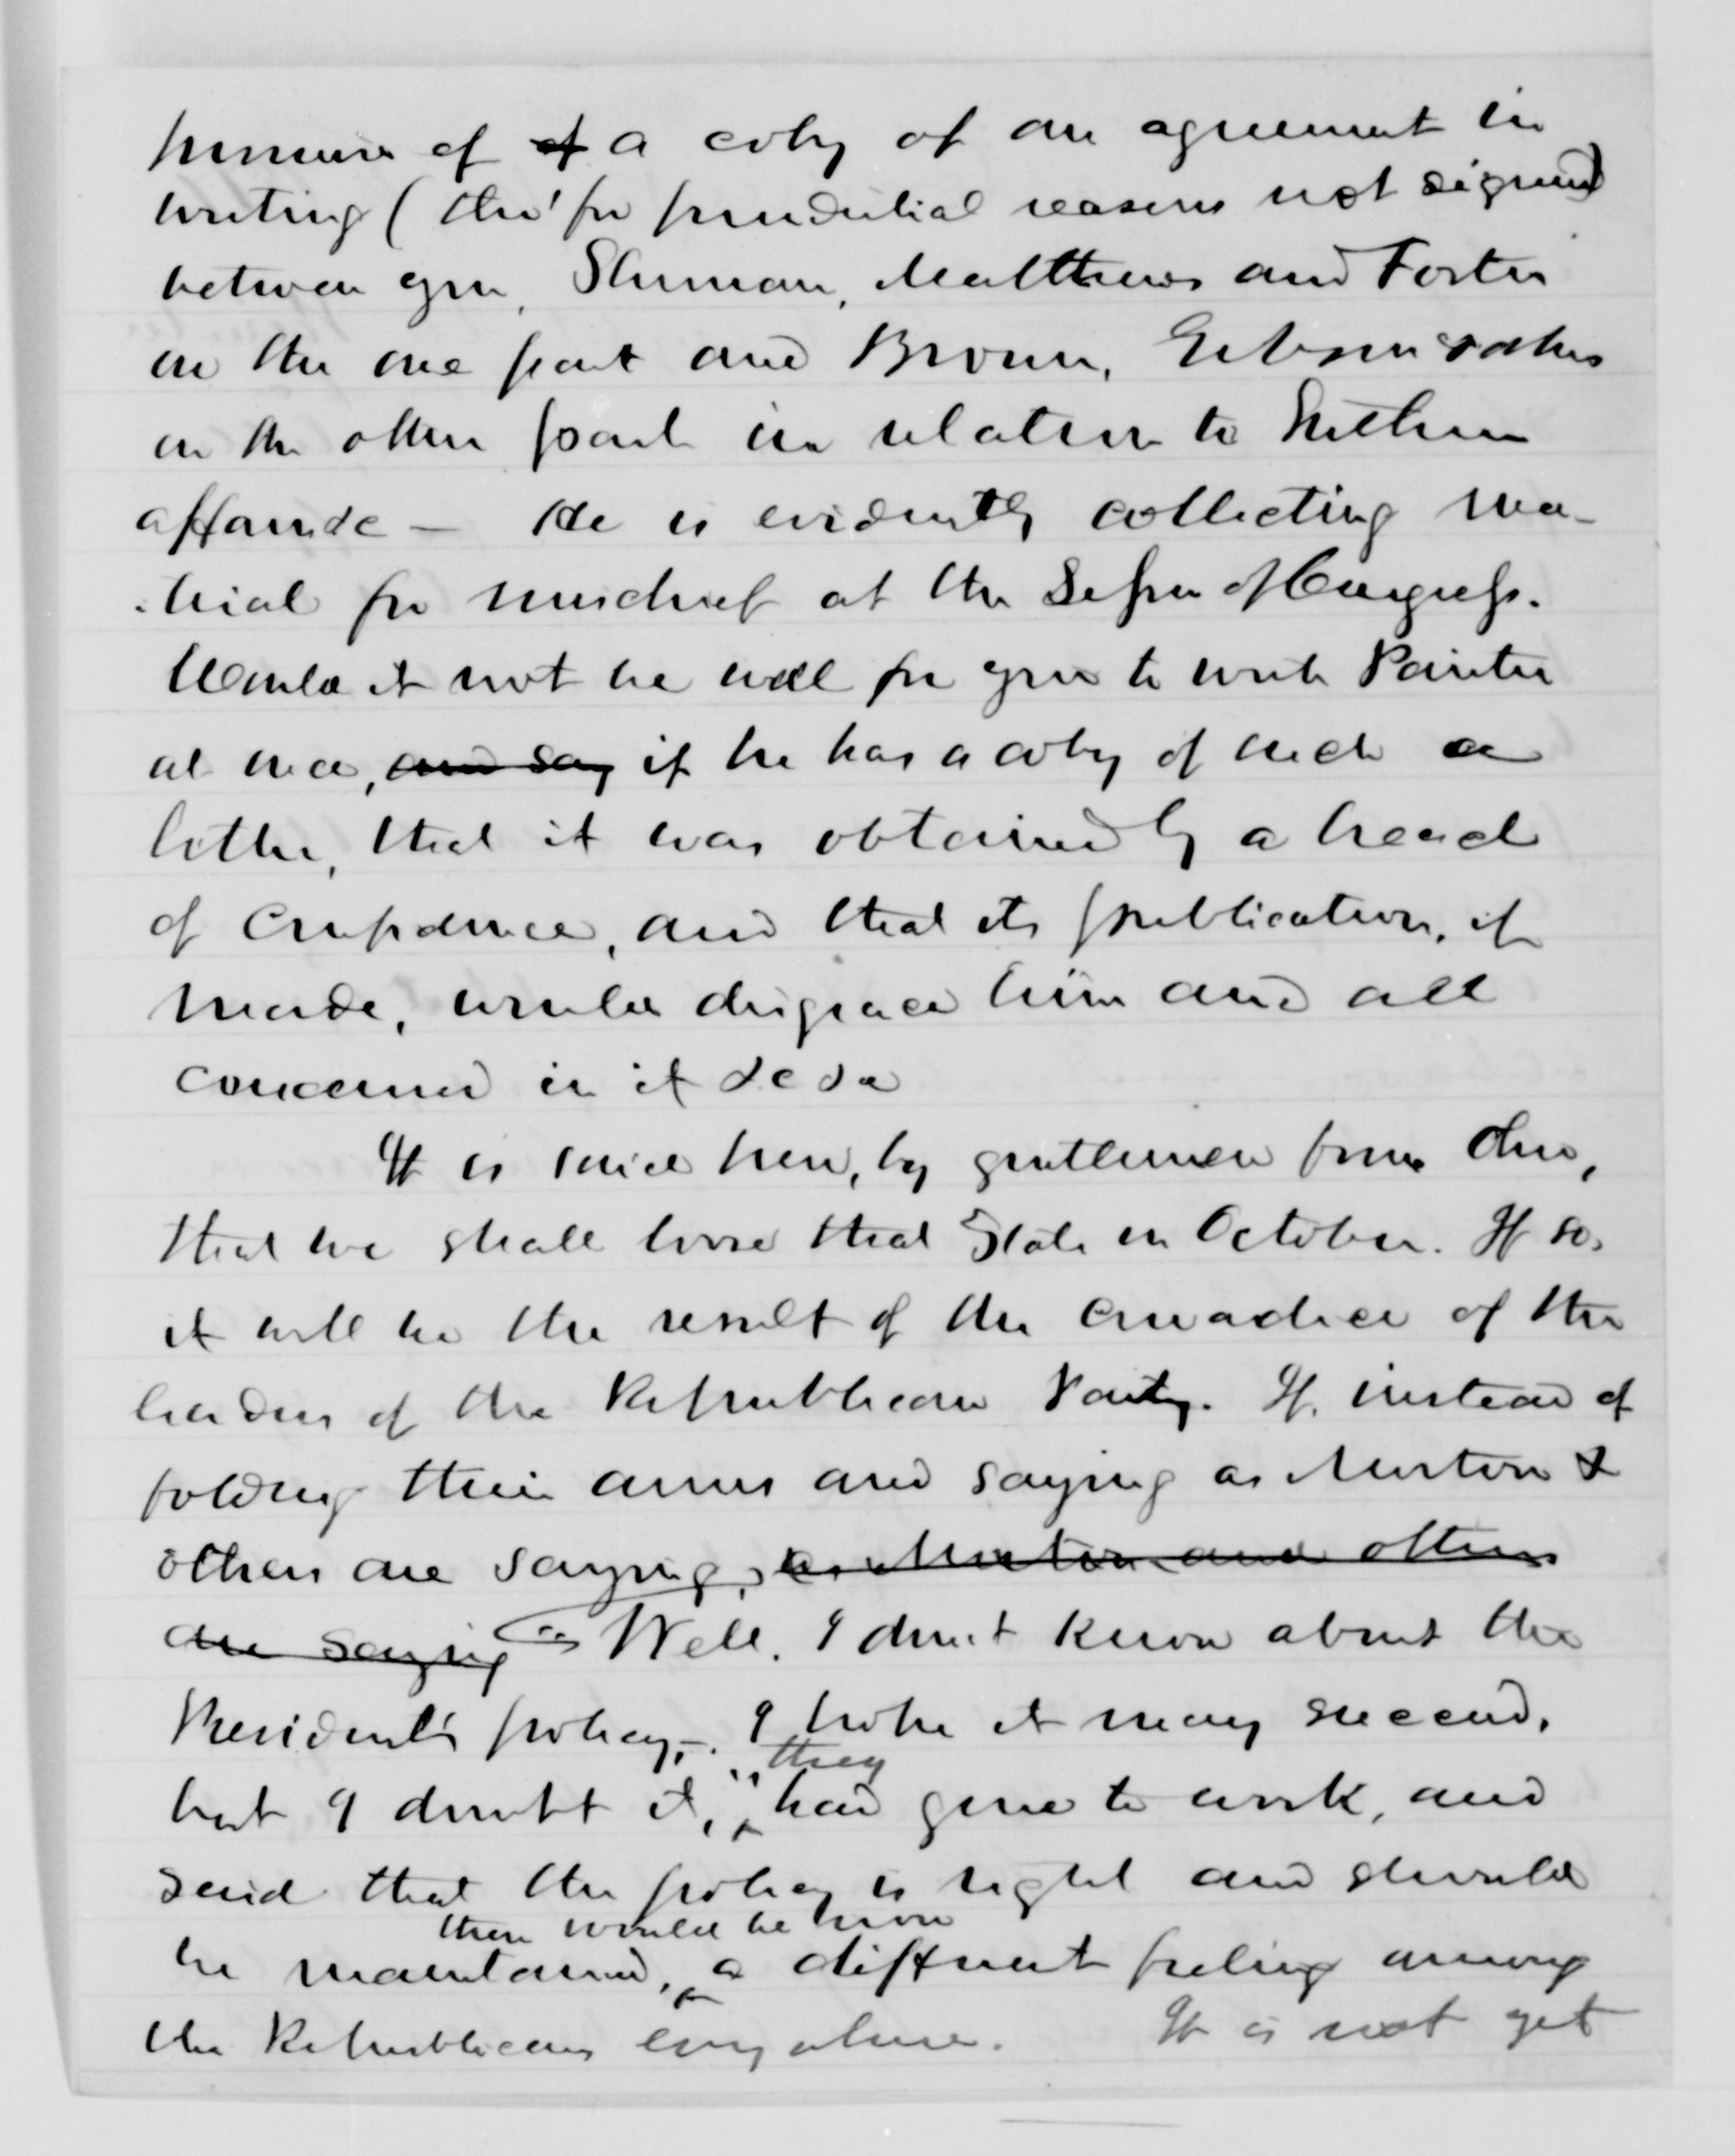 of ~~of~~ a copy of an agreement in
writing (tho' for prudential reasons not signed)
between you, Sherman, Matthews and Foster
on the one part and Brown, Gibson & others
on the other part in relation to Southern
affairs &c — He is evidently collecting ma-
terial for mischief at the Session of Congress.
Would it not be well for you to write Painter
at once, ~~and say~~ if he has a copy of such a
letter, that it was obtained by a breach
of confidence, and that its publication, if
made, would disgrace him and all
concerned in it &c &c
It is said here, by gentlemen from Ohio,
that we shall loose that State in October. If so,
it will be the result of the cowardice of the
leaders of the Republican Party. If, instead of
folding their arms and saying as Morton &
others are saying, ~~as Morton and others~~
~~are saying~~ "Well, I don't know about the
President's policy, — I hope it may succeed,
but I doubt it," they had gone to work, and
said that the policy is right and should
be maintained, there would be now a different feeling among
the Republicans everywhere. It is not yet